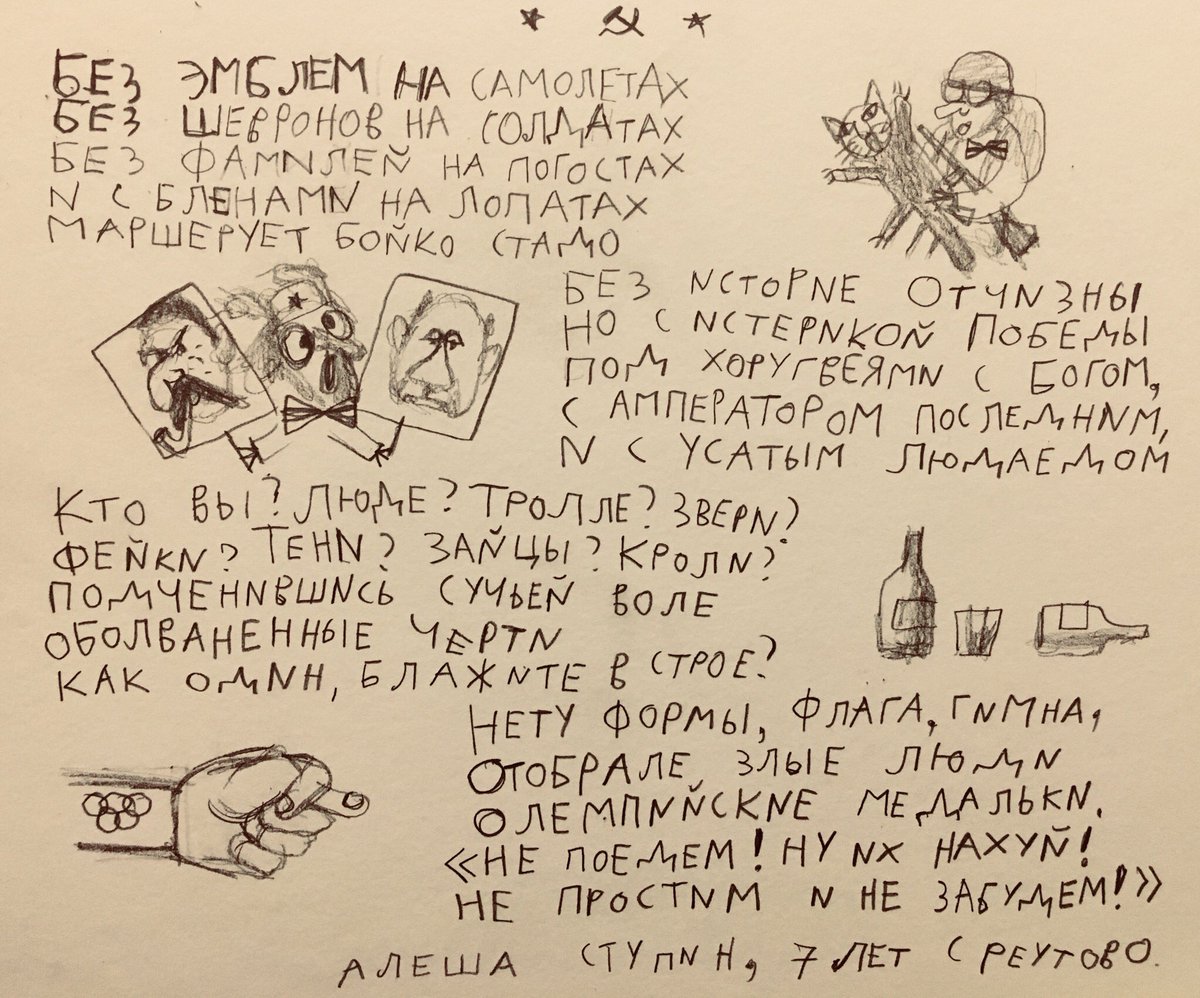 БЕЗ ЭМБЛЕМ НА САМОЛЕТАХ
БЕЗ ШЕВРОНОВ НА СОЛДАТАХ
БЕЗ ФАМИЛЕЙ НА ПОГОСТАХ
И С БЛЕНАМИ НА ЛОПАТАХ
МАРШЕРУЕТ БОЙКО СТАДО
БЕЗ ИСТОРИЕ ОТЧИЗНЫ
НО С ИСТЕРИКОЙ ПОБЕДЫ
ПОД ХОРУГВЕЯМИ С БОГОМ,
С АМПЕРАТОРОМ ПОСЛЕДНИМ,
И С УСАТЫМ ЛЮДАЕДОМ
КТО ВЫ? ЛЮДЕ? ТРОЛЛЕ? ЗВЕРИ?
ФЕЙКИ? ТЕНИ? ЗАЙЦЫ? КРОЛИ?
ПОДЧЕНИВШИСЬ СУЧЬЕЙ ВОЛЕ
ОБОЛВАНЕННЫЕ ЧЕРТИ
КАК ОДИН, БЛАЖИТЕ В СТРОЕ?
НЕТУ ФОРМЫ, ФЛАГА, ГИМНА,
ОТОБРАЛЕ ЗЛЫЕ ЛЮДИ
ОЛЕМПИЙСКИЕ МЕДАЛЬКИ.
«НЕ ПОЕДЕМ! НУ ИХ НАХУЙ!
НЕ ПРОСТИМ И НЕ ЗАБУДЕМ!»
АЛЕША СТУПИН, 7 ЛЕТ С РЕУТОВО.